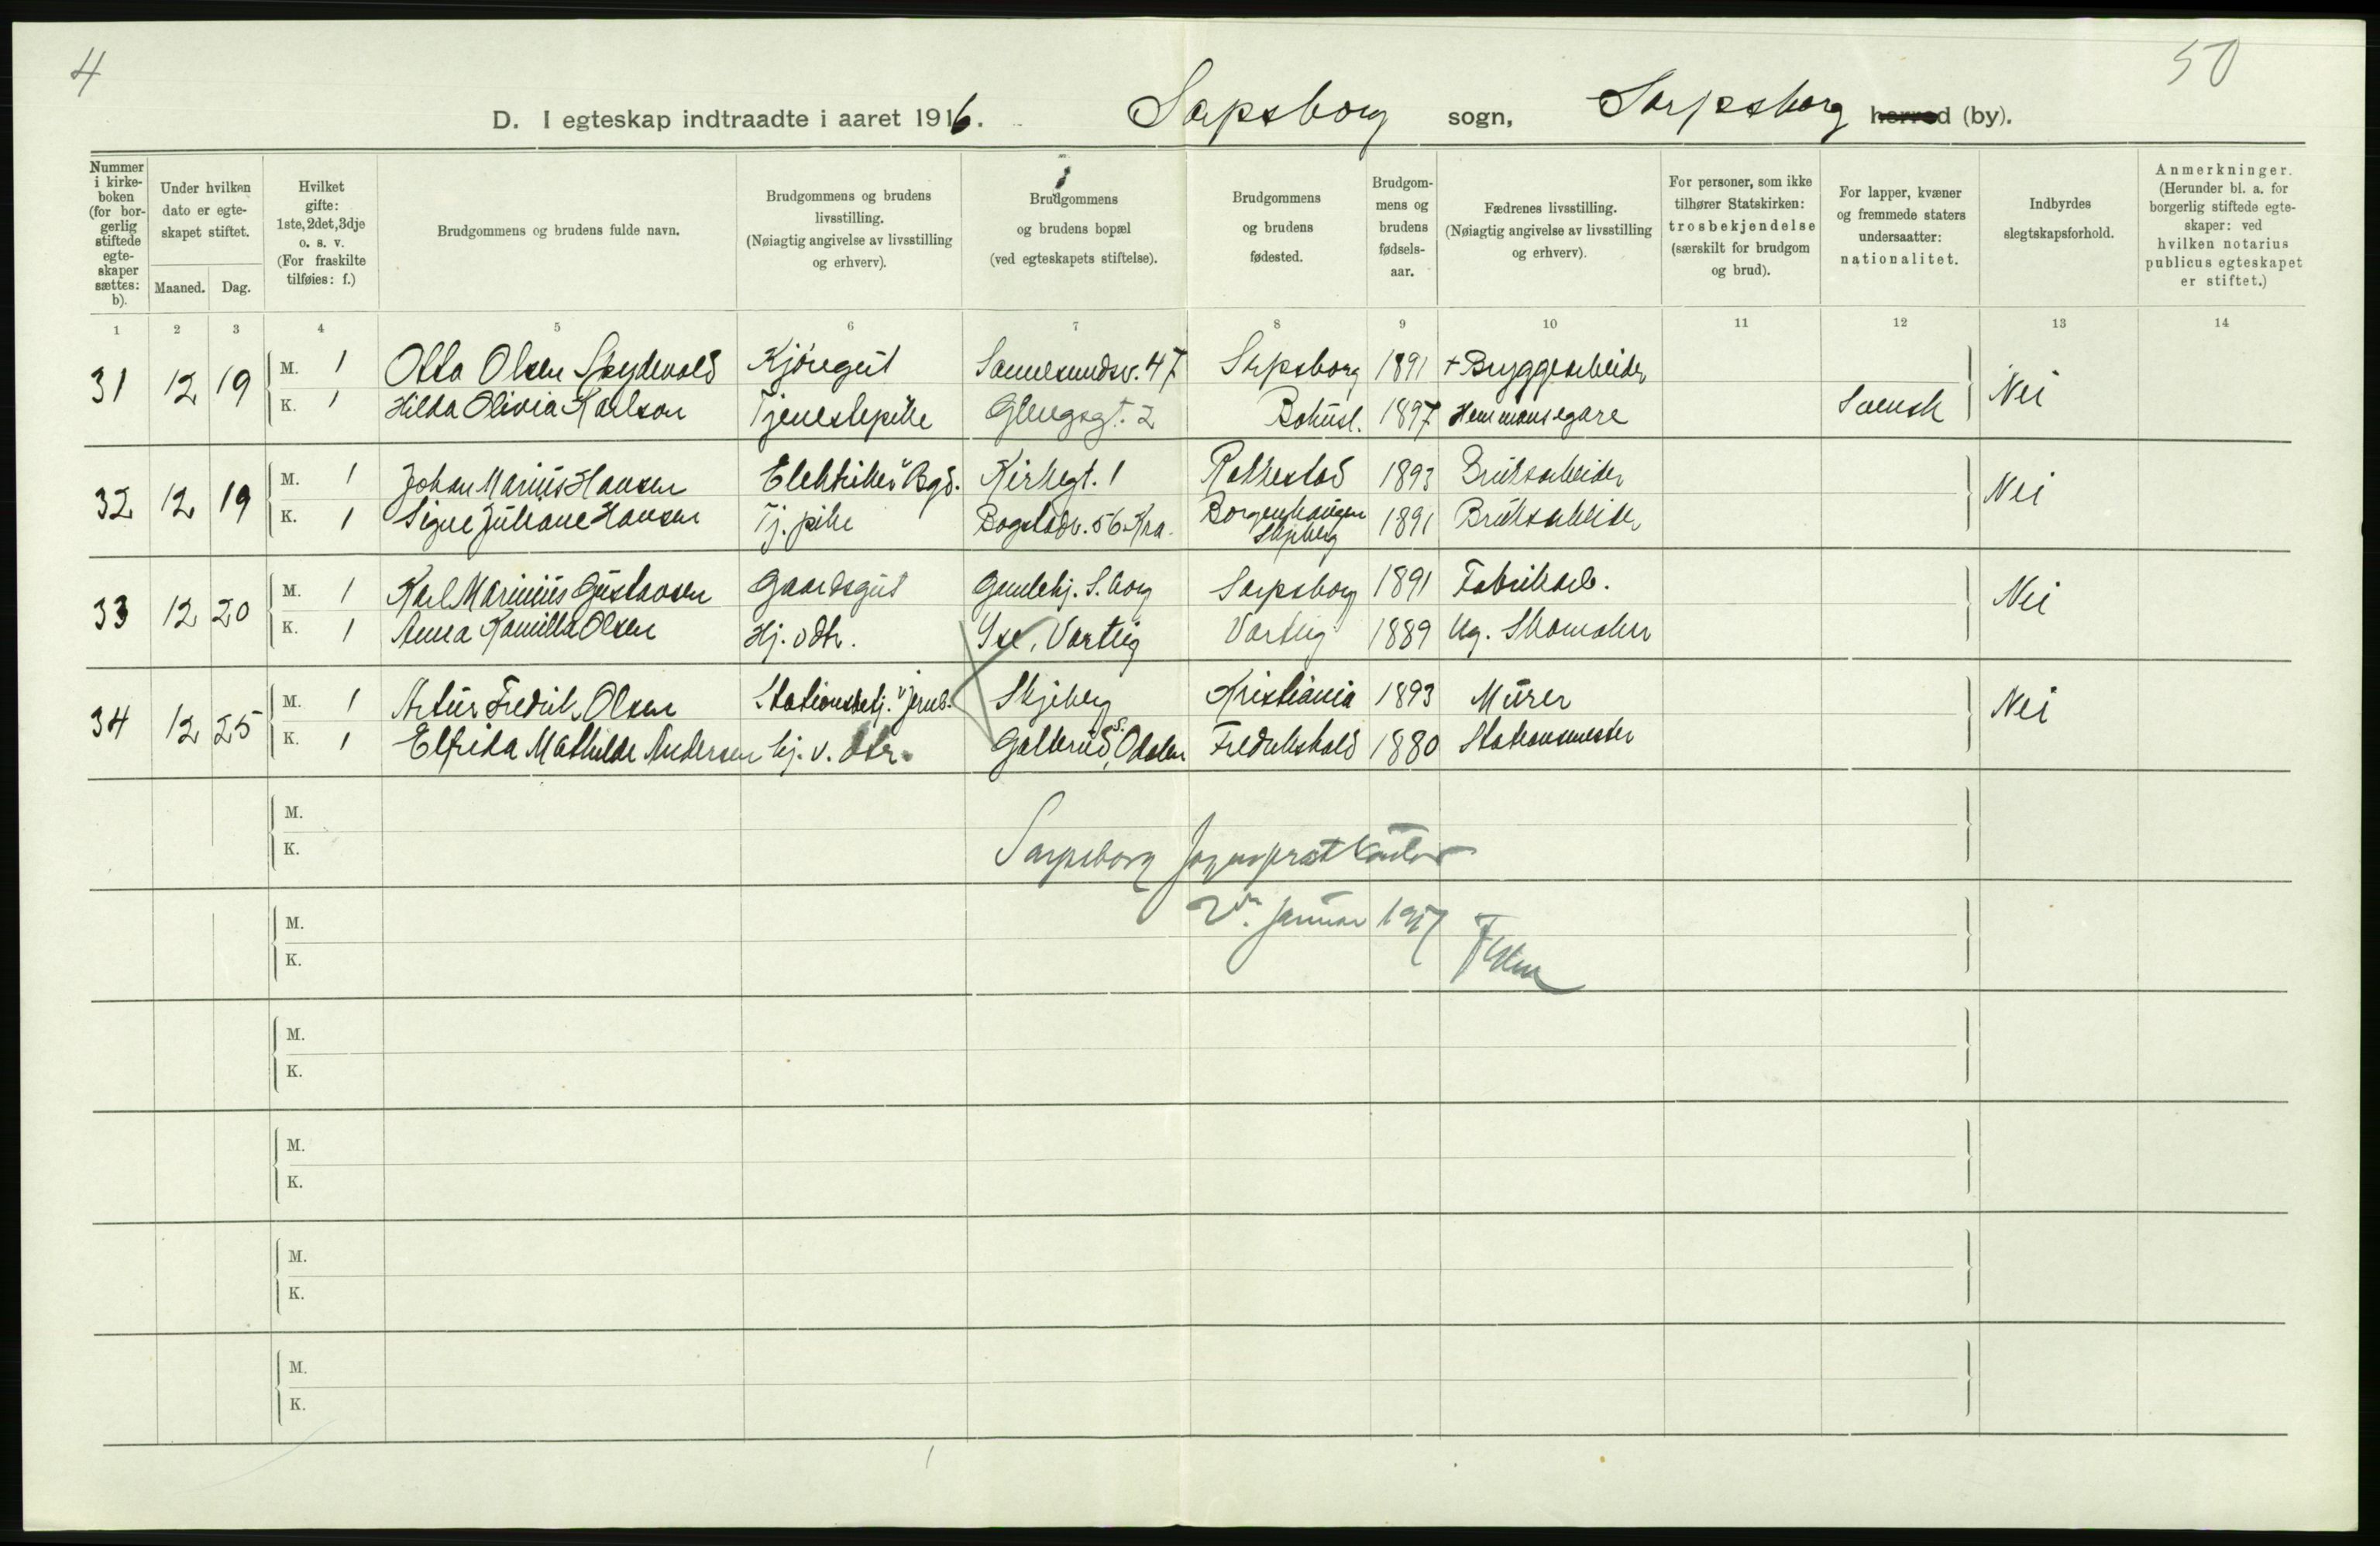 4
50
D. I egteskap indtraadte i aaret 1916. Sarpsborg sogn, Sarpsborg herred (by).
Nummer i kirke-boken (for bor-gerlig stiftede egte-skaper sættes: b).
Under hvilken dato er egte-skapet stiftet.
Maaned. Dag.
Hvilket gifte: 1ste, 2det, 3dje o. s. v. (For fraskilte tilføies: f.)
Brudgommens og brudens fulde navn.
Brudgommens og brudens livsstilling. (Nøiagtig angivelse av livsstilling og erhverv).
Brudgommens og brudens bopæl (ved egteskapets stiftelse).
Brudgommens og brudens fødested.
Brudgom-mens og brudens fødsels-aar.
Fædrenes livsstilling. (Nøiagtig angivelse av livsstilling og erhverv).
For personer, som ikke tilhører Statskirken: trosbekjendelse (særskilt for brudgom og brud).
For lapper, kvæner og fremmede staters undersaatter: nationalitet.
Indbyrdes slegtskapsforhold.
Anmerkninger. (Herunder bl. a. for borgerlig stiftede egte-skaper: ved hvilken notarius publicus egteskapet er stiftet.)
1 2 3 4 5 6 7 8 9 10 11 12 13 14
31 12 19 M. 1 Otto Olsen Skydevold Kjöregut Sannesundsv. 47 Sarpsborg 1891 + Bryggearbeider Nei
K. 1 Hilda Olivia Karlson Tjenestepike Glengsgt. 2 Bohusl. 1897 Hemmansegare Svensk
32 12 19 M. 1 Johan Marius Hansen Elektriker v Bgd. Kirkegt. 1 Rakkestad 1893 Bruksarbeider Nei
K. 1 Signe Juliane Hansen Tj. pike Bogstadv. 56 Kra. Borgenhaugen Skjeberg 1891 Bruksarbeider
33 12 20 M. 1 Karl Marinius Gustavsen Gaardsgut Gamlebj. S.borg Sarpsborg 1891 Fabrikarb. Nei
K. 1 Anna Kamilla Olsen Hj. v dtr. Ise, Varteig Varteig 1889 Ug. Skomaker
34 12 25 M. 1 Artur Fredrik Olsen Stationsbetj. v jernb. Skjeberg Kristiania 1893 Murer Nei
K. 1 Elfrida Mathilde Andersen hj. v. dtr. Galterud, S. Odalen Fredrikshald 1880 Stationsmester
M.
K.
Sarpsborg sogneprestkontor
M.
K.
2. januar 1917
M.
K.
M.
K.
M.
K.
M.
K.